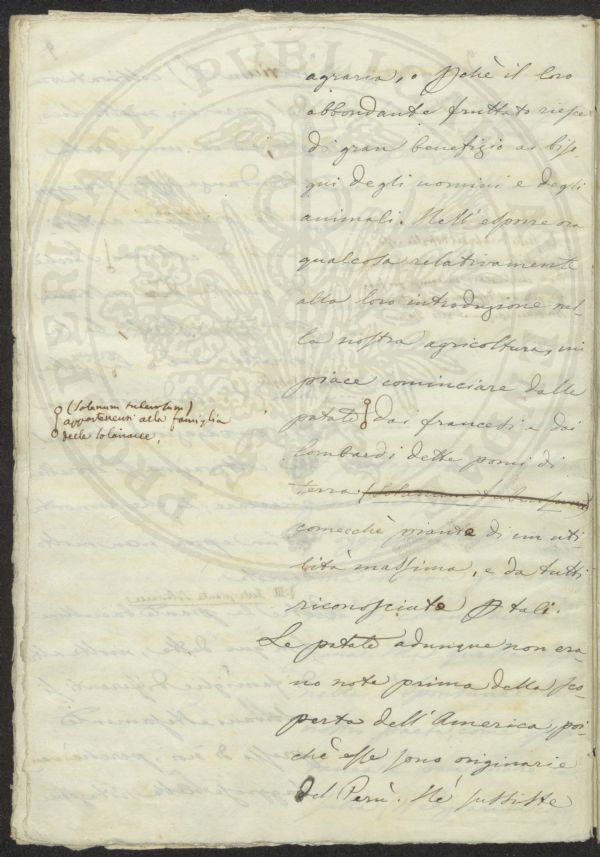 agraria, o p̱chè il loro
abbondante fruttato riesce
di gran benefizio ai biso-
gni degli uomini e degli
animali. Nell'esporre ora
qualcosa relativamente
alla loro introduzione nel-
la nostra agricoltura, mi
piace cominciare dalle
patate dai francesi e dai
lombardi dette pomi di
terra (Solanum tuberosum)
comecchè piante di un'uti-
lità massima, e da tutti
riconosciute p̱ tali.
Le patate adunque non era-
no note prima della sco-
perta dell'America, poi-
chè esse sono originarie
del Perù. Nè sussiste
(Solanum tuberosum)
appartenenti alla famiglia
delle solanacee,